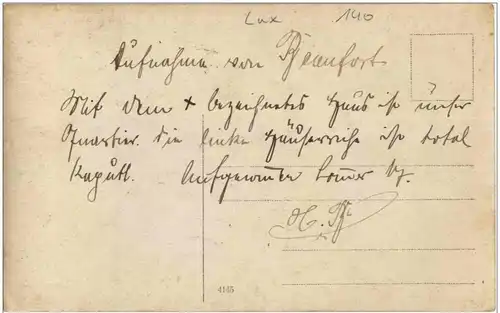 Lux 140
Aufnahme von Beaufort
Mit dem + bezeichnetes Haus ist unser
Quartier. Die linke Häuserreihe ist total
kaputt. Aufgenommen
H.
4165